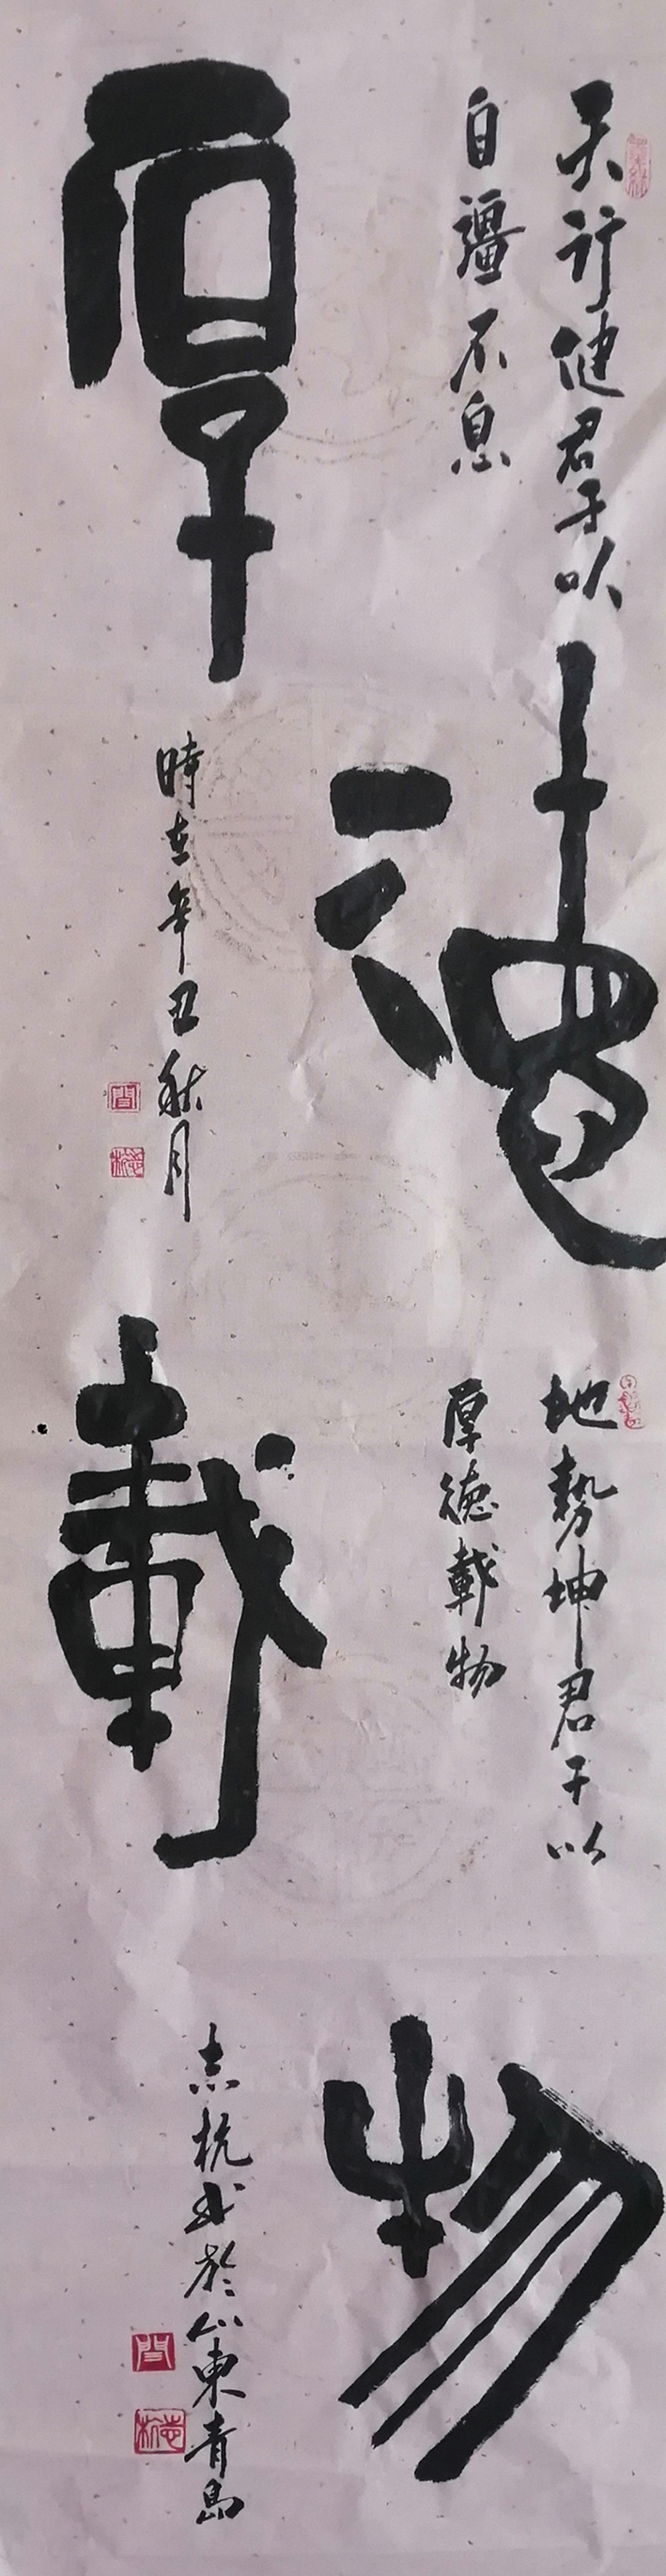 天行健君子以
自彊不息
厚
德
時在辛丑秋月
地勢坤君子以
厚德載物
載
物
志杭书於山東青島